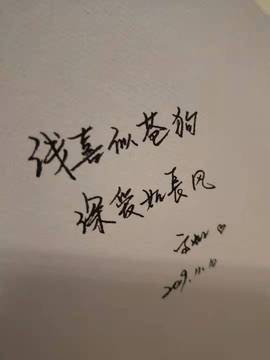 浅喜似苍狗
深爱如長风
2019.11.10